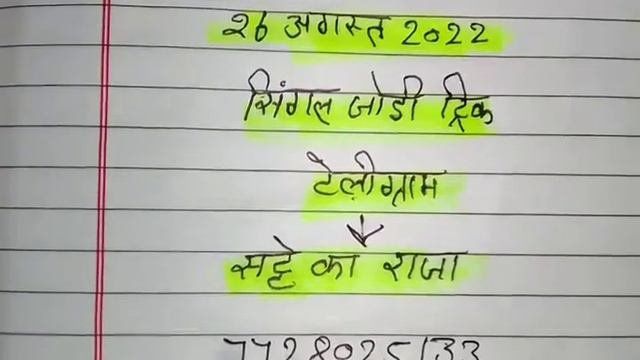 26 अगस्त 2022
सिंगल जोडी ट्रिक
टेलीग्राम
↓
सट्टे का राजा